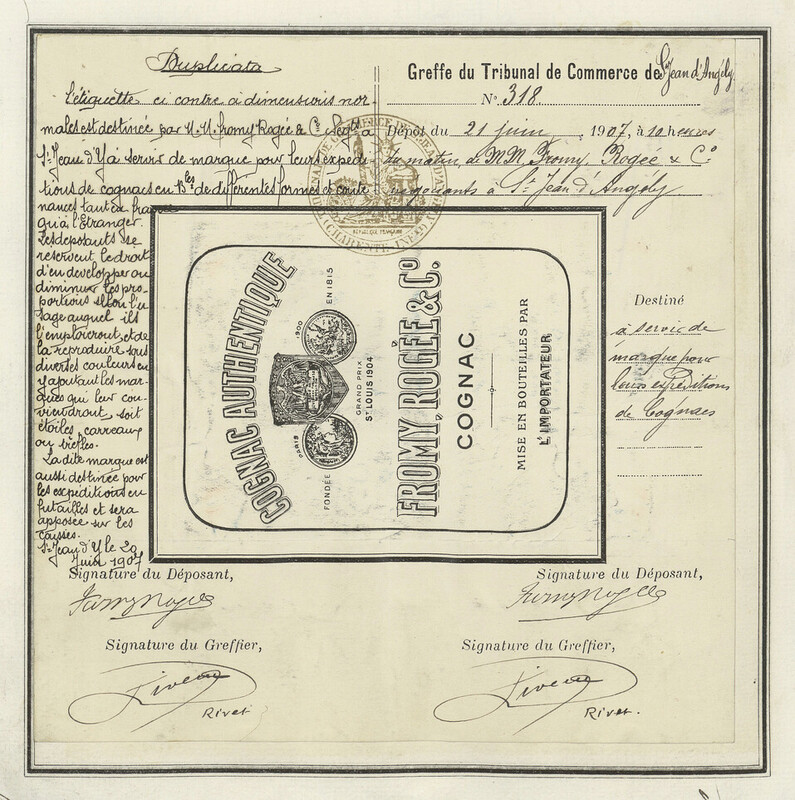 Duplicata
L'étiquette ci contre à dimensions nor-
males est destinée par M.M. Fromy Rogée & Cie Négts à
St Jean d'Y à servir de marque pour leurs expédi-
tions de cognacs en Bles de différentes formes et conte
nances tant en france
qu'à l'Etranger.
Les déposants se
réservent le droit
d'en developper ou
diminuer les pro-
portions selon l'u
sage auquel ils
l'emploieront, et de
la reproduire sous
diverses couleurs en
y ajoutant les mar-
ques qui leur con-
viendront soit
étoiles, carreaux
ou trèfles.
La dite marque est
aussi destinée pour
les expéditions en
futailles et sera
apposée sur les
caisses.
St Jean d'Y le 20
Juin 1907
Greffe du Tribunal de Commerce de St Jean d'Angély
No 318.
Dépôt du 21 juin, 1907, à 10 heures
du matin, de MM. Fromy, Rogée & Co
négociants à St Jean d'Angély
RÉPUBLIQUE FRANÇAISE
COGNAC AUTHENTIQUE
FONDÉE EN 1815
PARIS 1900
GRAND PRIX
St LOUIS 1904
FROMY, ROGÉE & Co.
COGNAC
MISE EN BOUTEILLES PAR
L'IMPORTATEUR
Destiné
à servir de
marque pour
leurs expéditions
de Cognacs
Signature du Déposant,
Fromy Rogée
Signature du Greffier,
Rivet
Signature du Déposant,
Fromy Rogée
Signature du Greffier,
Rivet.